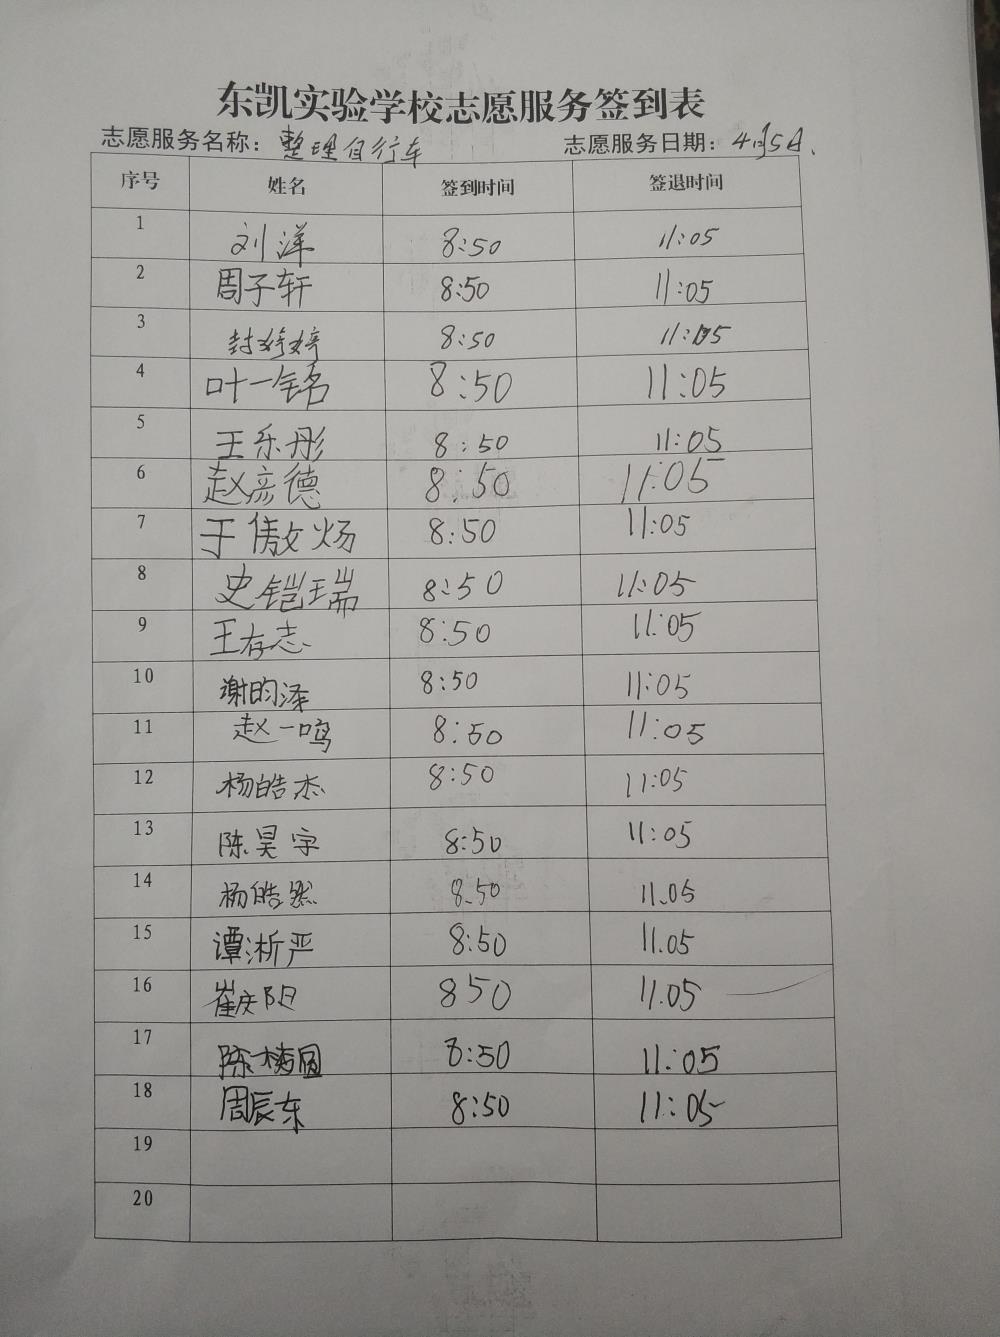 东凯实验学校志愿服务签到表
志愿服务名称：整理自行车 志愿服务日期：4月5日.
序号 姓名 签到时间 签退时间
1 刘洋 8:50 11:05
2 周子轩 8:50 11:05
3 封婷婷 8:50 11:05
4 叶一铭 8:50 11:05
5 王乐彤 8:50 11:05
6 赵彦德 8:50 11:05
7 于傲炀 8:50 11:05
8 史铠瑞 8:50 11:05
9 王存志 8:50 11:05
10 谢昀泽 8:50 11:05
11 赵一鸣 8:50 11:05
12 杨皓杰 8:50 11:05
13 陈昊宇 8:50 11:05
14 杨皓然 8.50 11.05
15 谭淅严 8:50 11.05
16 崔庆阳 850 11.05
17 8:50 11:05
18 周辰东 8:50 11:05
19
20